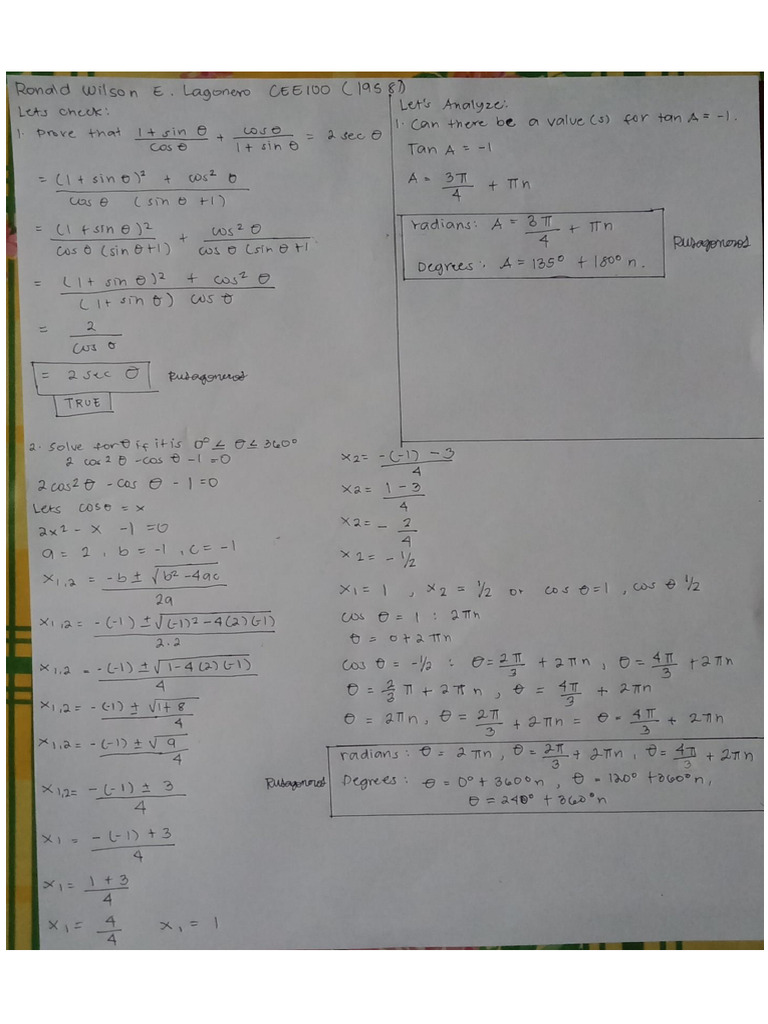 Ronald Wilson E. Lagonero CEE100 (1958)
Lets check:
1. Prove that (1 + sin θ)/(cos θ) + (cos θ)/(1 + sin θ) = 2 sec θ
= ((1 + sin θ)² + cos² θ)/(cos θ (sin θ + 1))
= (1 + sin θ)2/(cos θ (sin θ+1)) + (cos² θ)/(cos θ (sin θ+1
= ((1 + sin θ)² + cos² θ)/((1 + sin θ) cos θ)
= 2/(cos θ)
= 2 sec θ
TRUE
Let's Analyze:
1. Can there be a value(s) for tan A = -1.
Tan A = -1
A = 3π/4 + πn
radians: A = 3π/4 + πn
Degrees: A = 135° + 180° n.
2. Solve for θ if it is 0° ≤ θ ≤ 360°
2 cos² θ - cos θ - 1 = 0
2 cos² θ - cos θ - 1 = 0
Lets cos θ = x
2x² - x - 1 = 0
a = 2, b = -1, c = -1
x1,2 = (-b ± √(b² - 4ac))/2a
x1,2 = (-(-1) ± √((-1)² - 4(2)(-1)))/2.2
x1,2 = (-(-1) ± √(1 - 4(2)(-1)))/4
x1,2 = (-(-1) ± √(1+8))/4
x1,2 = (-(-1) ± √9)/4
x1,2 = (-(-1) ± 3)/4
x1 = (-(-1) + 3)/4
x1 = (1 + 3)/4
x1 = 4/4 x1 = 1
x2 = (-(-1) - 3)/4
x2 = (1 - 3)/4
x2 = - 2/4
x2 = - 1/2
x1 = 1 , x2 = 1/2 or cos θ = 1 , cos θ 1/2
cos θ = 1 : 2πn
θ = 0 + 2πn
cos θ = -1/2 : θ = 2π/3 + 2πn , θ = 4π/3 + 2πn
θ = 2/3 π + 2πn , θ = 4π/3 + 2πn
θ = 2πn, θ = 2π/3 + 2πn = θ = 4π/3 + 2πn
radians: θ = 2πn , θ = 2π/3 + 2πn, θ = 4π/3 + 2πn
Degrees: θ = 0° + 360° n , θ = 120° + 360° n,
θ = 240° + 360° n